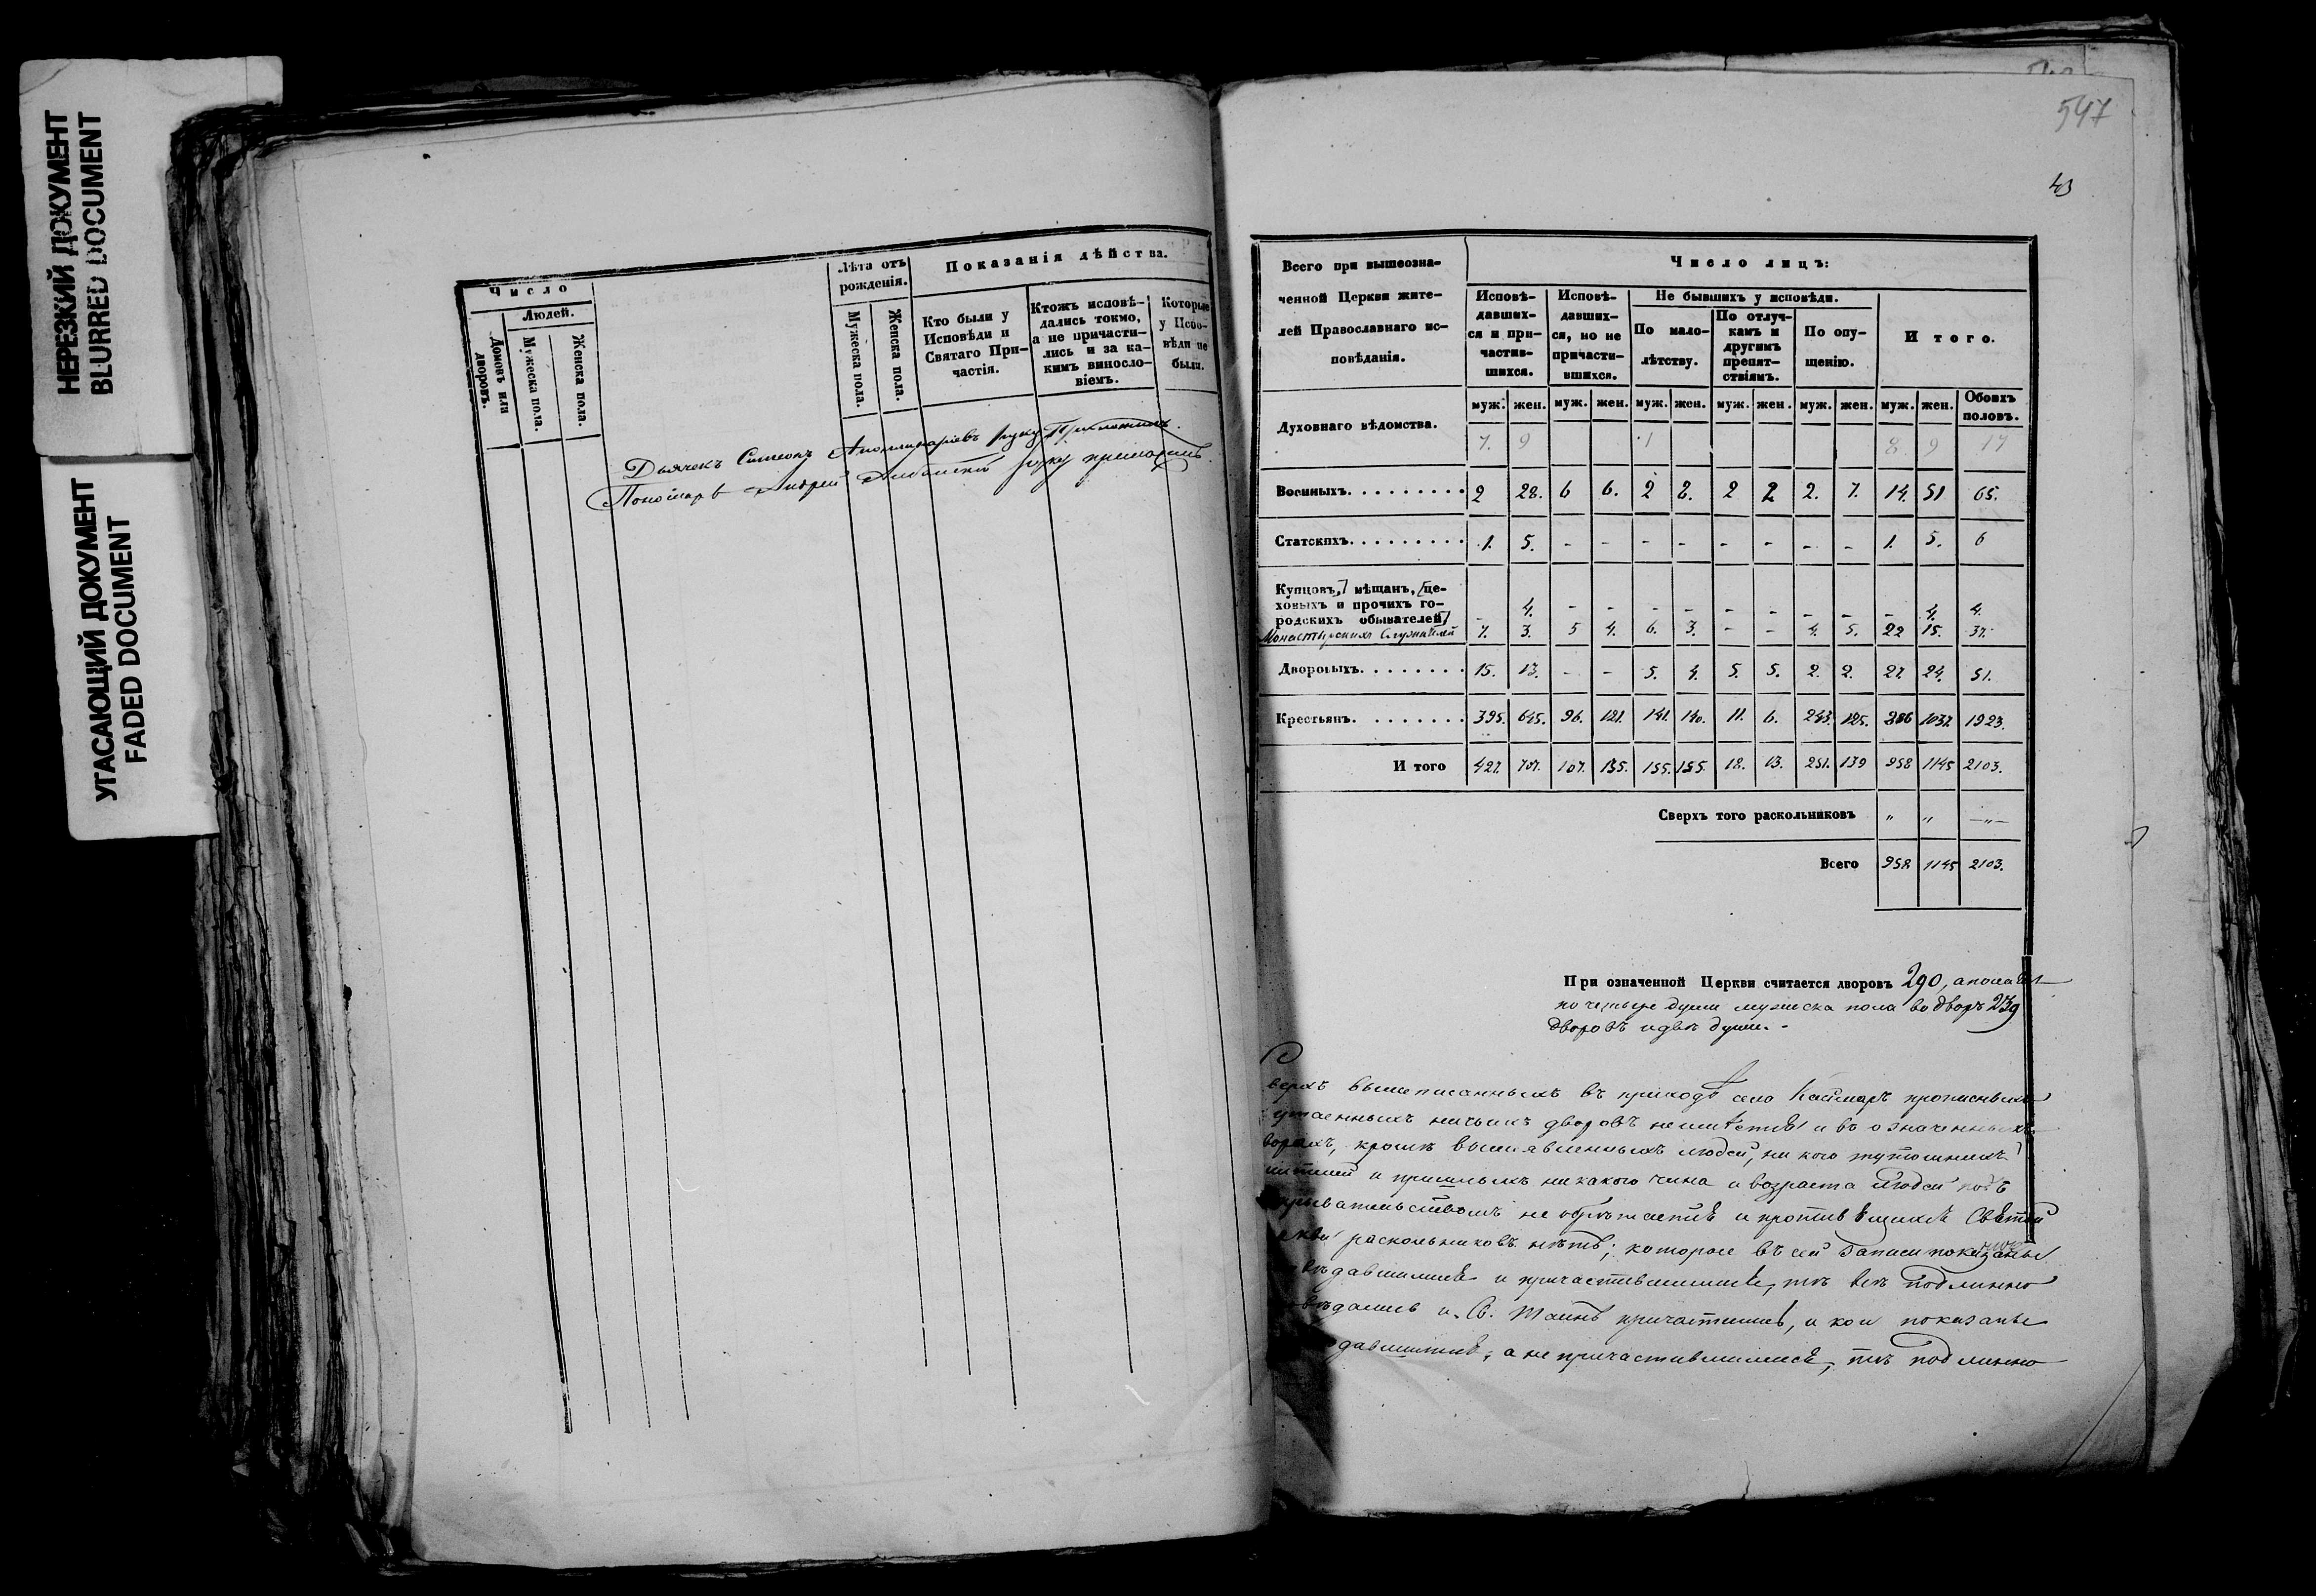 НЕРЕЗКИЙ ДОКУМЕНТ
BLURRED DOCUMENT
УГАСАЮЩИЙ ДОКУМЕНТ
FADED DOCUMENT
Число
Людей.
Домовъ или дворовъ.
Мужеска пола.
Женска пола.
Лѣта отъ рожденія.
Мужеска пола.
Женска пола.
Показанія дѣйства.
Кто были у Исповѣди и Святаго Причастія.
Ктожъ исповѣдались токмо, а не причастились и за какимъ винословіемъ.
Которые у Исповѣди не были.
Дьячекъ Симеонъ руку приложилъ.
Пономарь Андрей руку приложилъ.
547
43
Всего при вышеозна-
ченной Церкви жите-
лей Православнаго ис-
повѣданія.
Число лицъ:
Исповѣ-
давших-
ся и при-
частив-
шихся.
Исповѣ-
давших-
ся, но не
причасти-
вшихся.
Не бывшихъ у исповѣди.
По мало-
лѣтству.
По отлуч-
камъ и
другимъ
препят-
ствіямъ.
По опу-
щенію.
Итого.
муж. жен. муж. жен. муж. жен. муж. жен. муж. жен. муж. жен. Обоихъ половъ.
Духовнаго вѣдомства. 7. 9 1 8. 9 17
Военныхъ. 2 28. 6 6. 2 8. 2 2 2. 7. 14. 51 65.
Статскихъ. 1. 5. - - - - - - - - 1. 5. 6
Купцовъ,] мѣщанъ, [це-
ховыхъ и прочихъ го-
родскихъ обывателей] - 4. - - - - - - - - - 4. 4.
Монастырскихъ Служителей 7. 3. 5 4. 6. 3. - - 4. 5. 22 15. 37.
Дворовыхъ. 15. 13. - - 5. 4. 5. 5. 2. 2. 27. 24. 51.
Крестьянъ. 395. 645. 96. 121. 141. 140. 11. 6. 243. 125. 886 1037. 1923.
И того 427. 707. 107. 135. 155. 155. 18. 13. 251. 139 958 1145 2103.
Сверхъ того раскольниковъ " " —"—
Всего 958 1145 2103.
При означенной Церкви считается дворовъ 290, а полагая
по четыре души мужеска пола во дворъ 239
дворовъ и двѣ души.
Сверхъ вышеписанныхъ въ приходѣ села Каймаръ прописныхъ
утаенныхъ ничьихъ дворовъ не имѣется и въ означенныхъ
кромѣ вышеявленныхъ людей, ни кого тутошнихъ
и пришлыхъ никакого чина и возраста людей подъ
не обрѣтается и противящихся Святой
раскольниковъ нѣтъ; которые въ сей записи показаны
и причастившимися, тѣ всѣ подлинно
и Св. Таинъ причастились, и кои показаны
а не причастившимися, тѣ подлинно